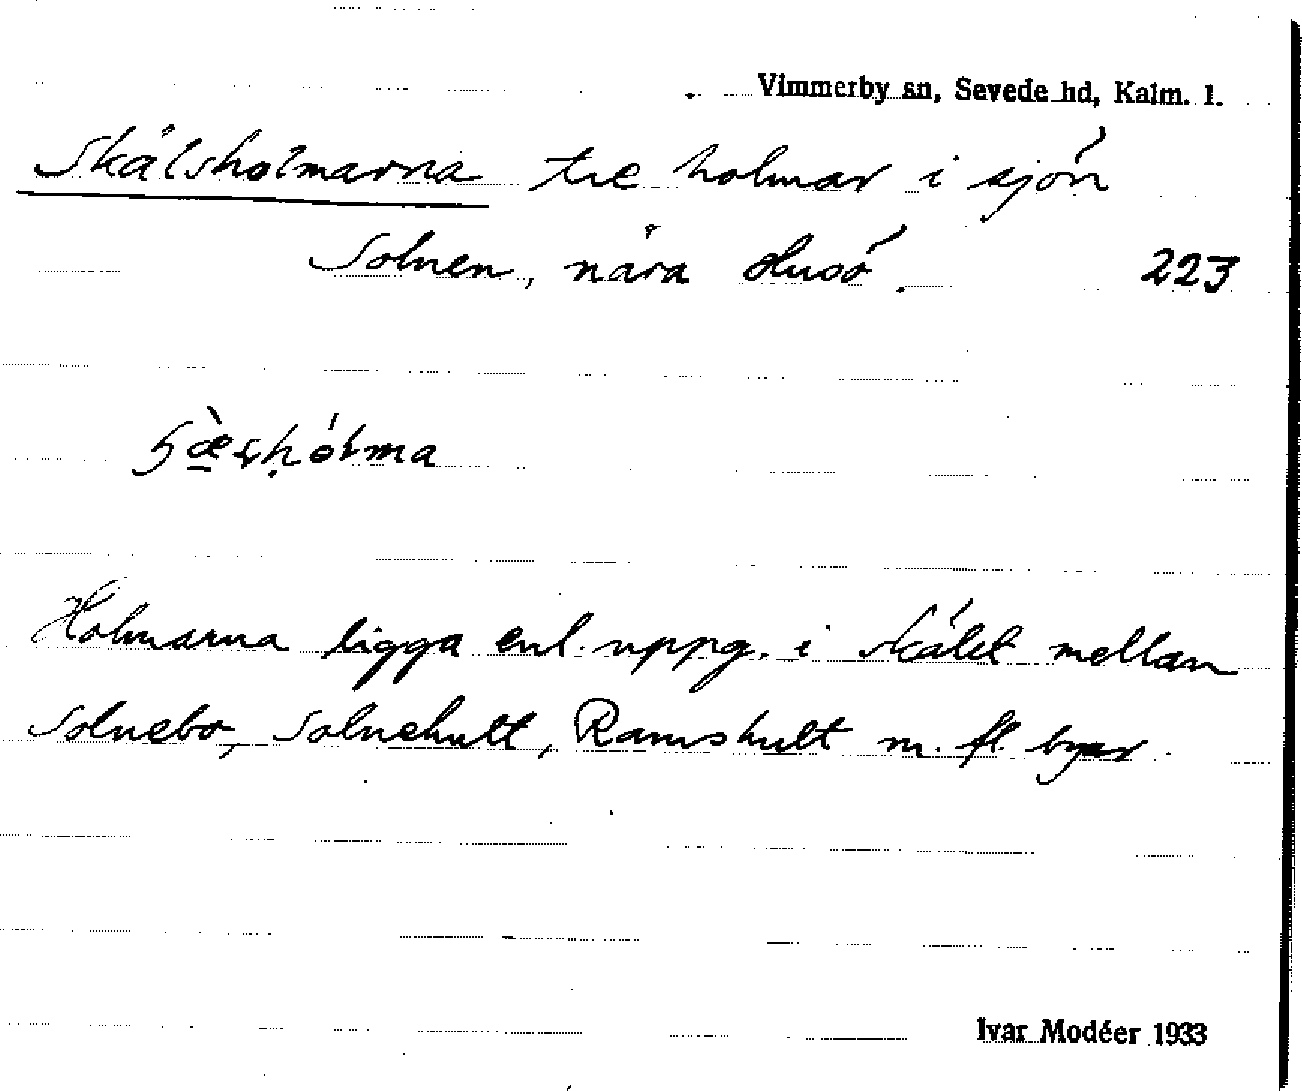 Vimmerby sn, Sevede hd, Kalm. l.
Skälsholmarna tre holmar i sjön
Solnen, nära Husö. 223
Holmarna ligga enl. uppg. i skälet mellan
Solnebo, Solnehult, Ramshult m. fl. byar.
Ivar Modéer 1933